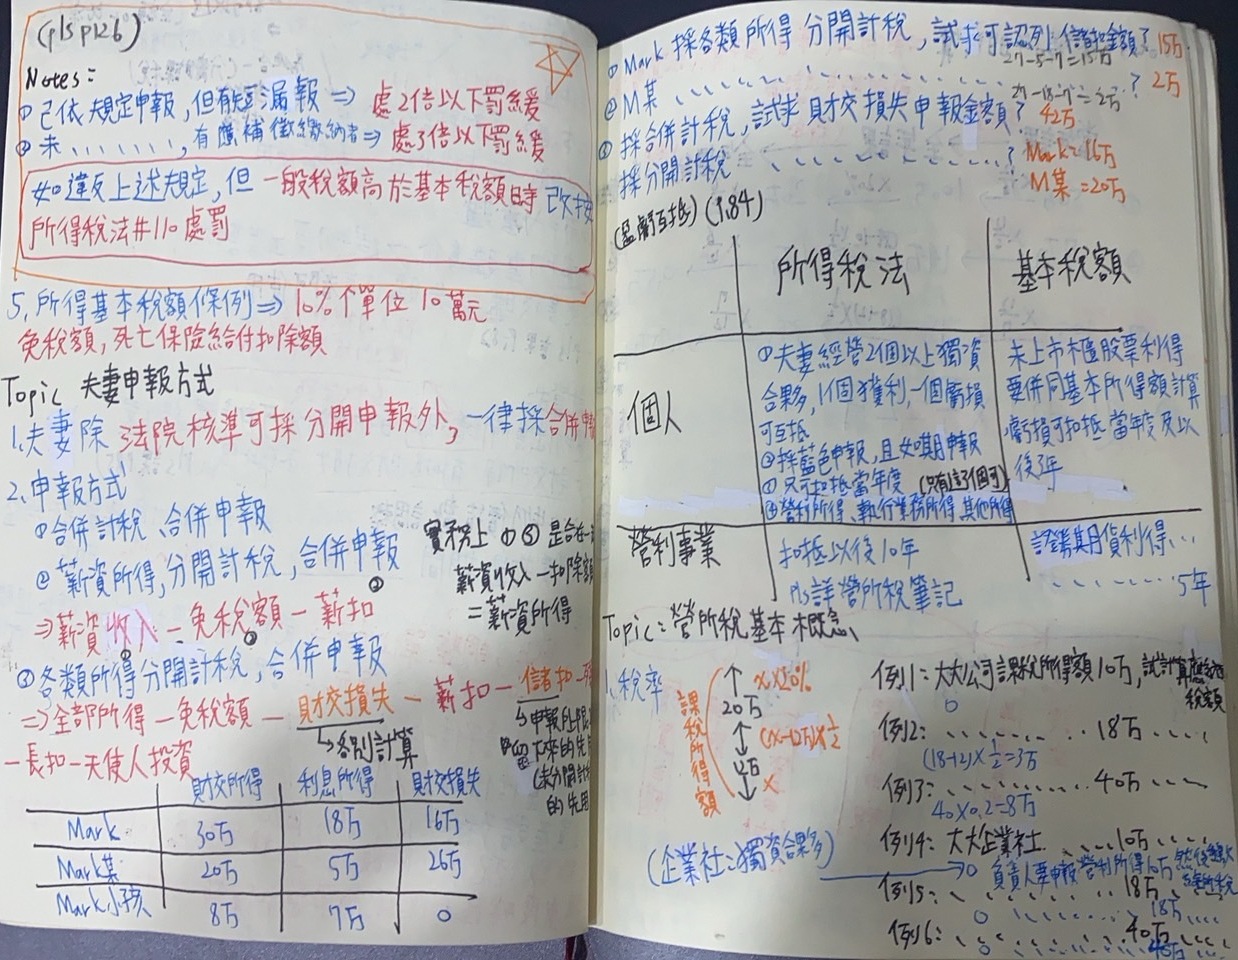 (pls p126)
Notes:
①已依規定申報,但有短漏報⇒處2倍以下罰鍰
②未、、、、、、,有應補徵繳納者⇒處3倍以下罰鍰
如違反上述規定,但一般稅額高於基本稅額時改按
所得稅法#110處罰
5.所得基本稅額條例⇒10%個單位10萬元
免稅額,死亡保險給付扣除額
Topic 夫妻申報方式
1.夫妻除法院核準可採分開申報外,一律採合併申報
2.申報方式
①合併計稅、合併申報
②薪資所得,分開計稅,合併申報
⇒薪資收入-免稅額-薪扣
實務上①③是合在一
薪資收入-扣除額
=薪資所得
③各類所得分開計稅,合併申報
⇒全部所得-免稅額-財交損失-薪扣-儲扣-
↳各別計算
-長扣-天使人投資
財交所得 利息所得 財交損失
Mark 30万 18万 16万
Mark某 20万 5万 26万
Mark小孩 8万 7万 0
①Mark採各類所得分開計稅,試求可認列儲扣金額?15万
27-5-7=15万
②M某、、、、、、、、、、、?2万
27-18-7=2万
③採合併計稅,試求財交損失申報金額?42万
採分開計稅、、、、、、、、?Mark=16万
M某=20万
(盈虧互抵)(1.84)
所得稅法 基本稅額
個人
①夫妻經營2個以上獨資
合夥,1個獲利,一個虧損
可互抵
②採藍色申報,且如期申報
③只行扣抵當年度(只有這3個可)
④營利所得、執行業務所得、其他所得
未上市櫃股票利得
要併同基本所得額計算
,虧損可扣抵當年度及以
後3年
營利事業
扣抵以後10年
pls詳營所稅筆記
證券期貨利得…
、、、、、、、5年
Topic:營所稅基本概念
1.稅率
課稅所得額
x×20%
20万
(x-12万)×½
12万
x
例1:大大公司課稅所得額10万,試計算應納稅額
0
例2:、、、、、、18万、、、
(18-12)×½=3万
例3:、、、、、、40万、、、
40×0.2=8万
例4:大大企業社、、、、10万、、、
(企業社:獨資合夥)
→0 負責人要申報營利所得10万
例5:、、、、、、18万、、、
0、、、、、、18万、、、
例6:、、、、、、40万、、、
0、、、、、、40万、、、